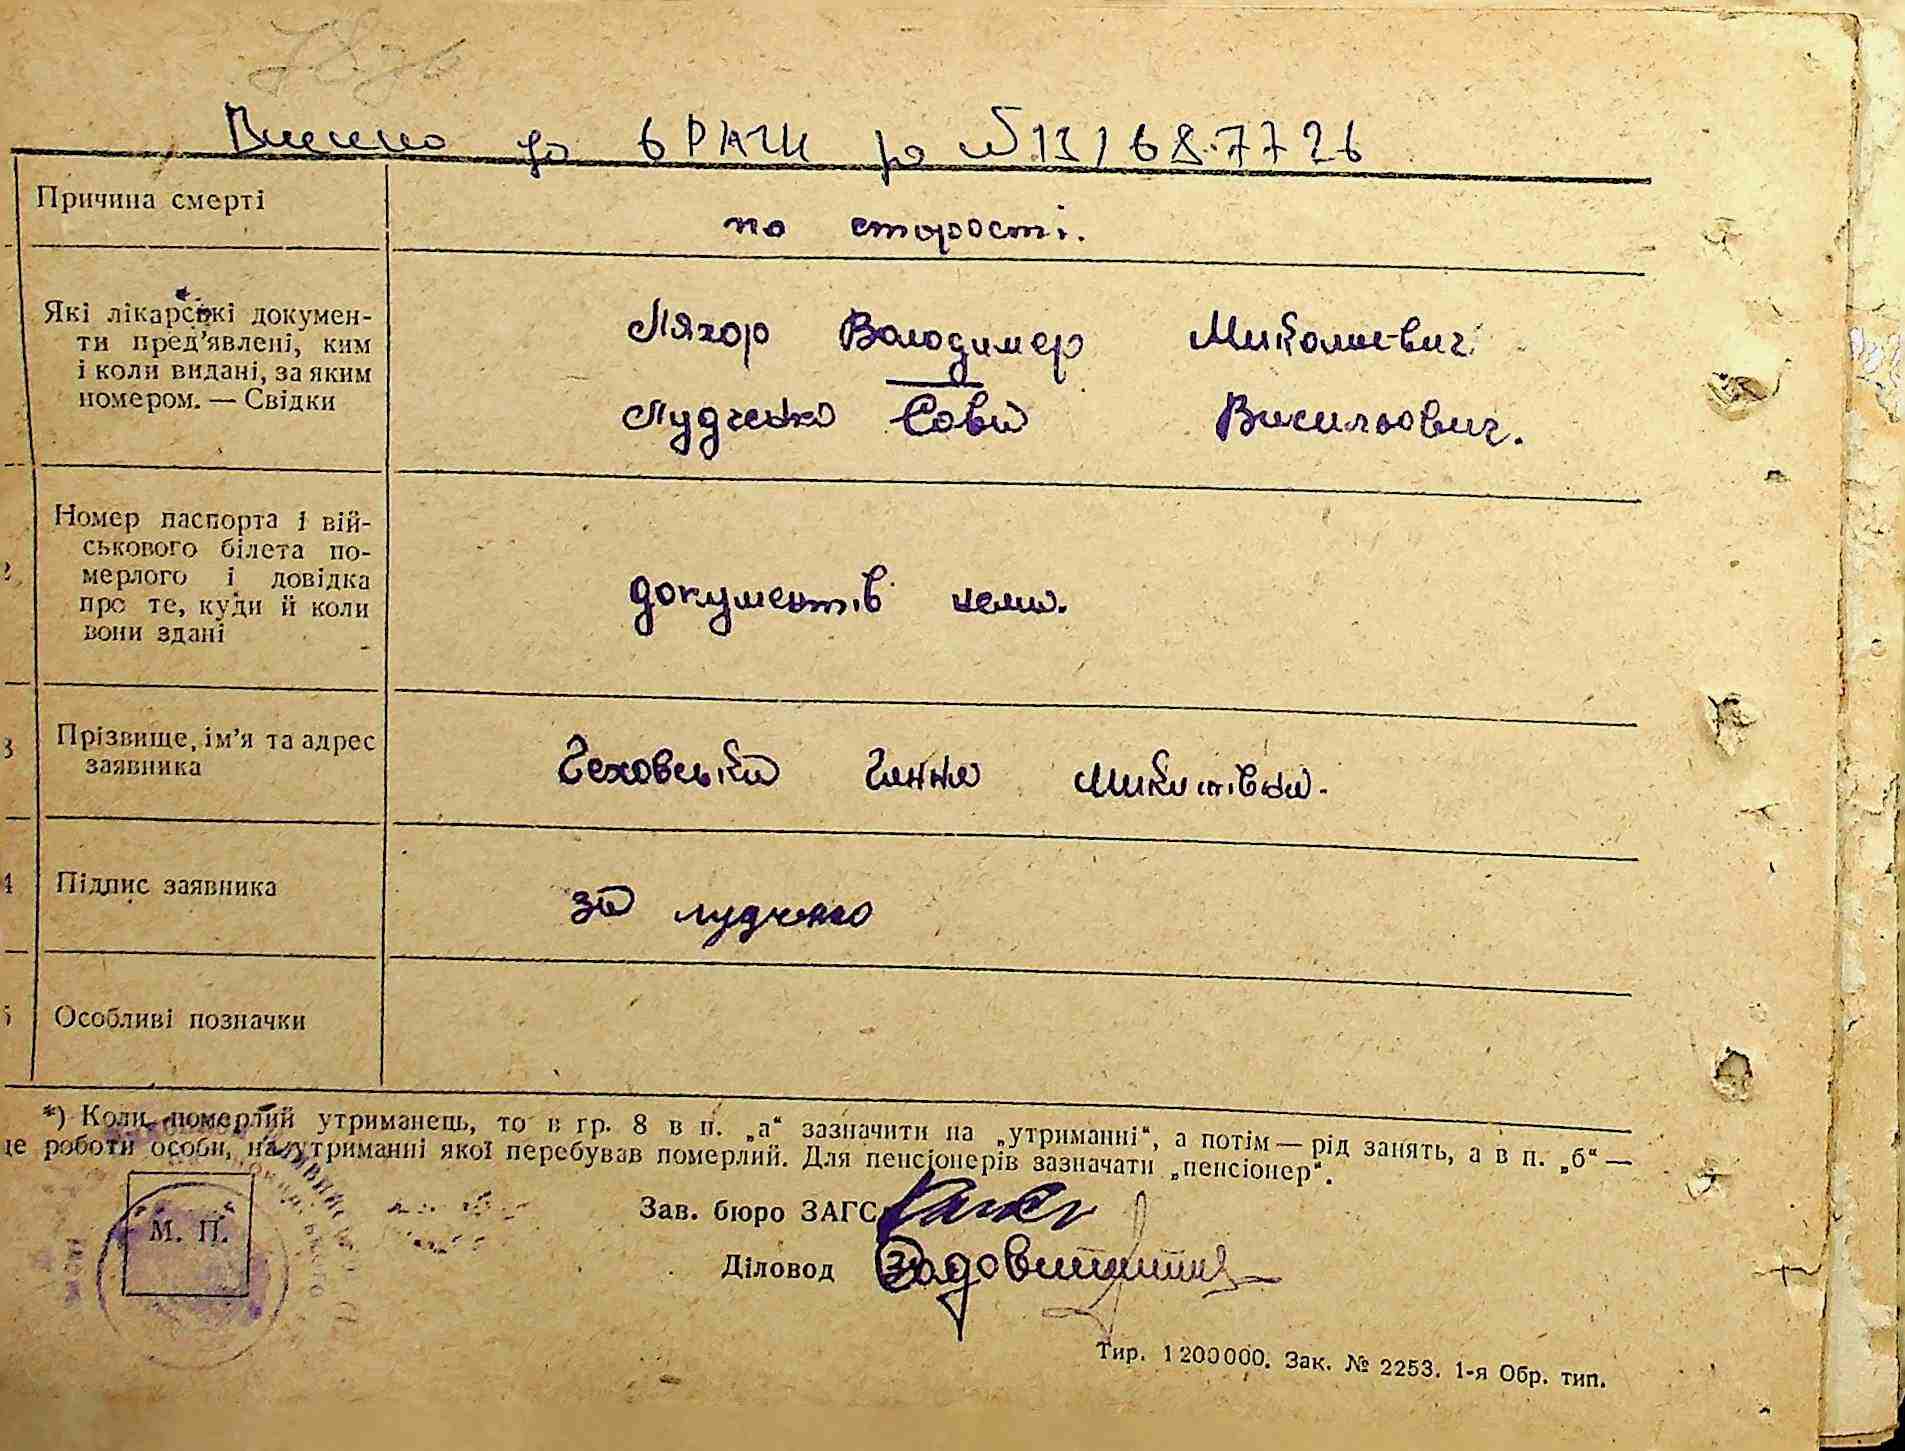 Внесено до ДРАЦС за № 13168.7726
Причина смерті
по старості.
Які лікарські докумен-
ти пред'явлені, ким
і коли видані, за яким
номером. — Свідки
Ляхор Володимер Миколаєвич
Лудченко Сава Васильович.
Номер паспорта і вій-
ськового білета по-
мерлого і довідка
про те, куди й коли
вони здані
документів нема.
3
Прізвище, ім'я та адрес
заявника
Чеховська Ганна Микитівна.
4
Підпис заявника
за лудченко
Особливі позначки
*) Коли померлий утриманець, то в гр. 8 в п. „а“ зазначити на „утриманні“, а потім — рід занять, а в п. „б“ —
це роботи особи, на утриманні якої перебував померлий. Для пенсіонерів зазначати „пенсіонер“.
М. П.
Зав. бюро ЗАГС
Діловод
Тир. 1200000. Зак. № 2253. 1-я Обр. тип.